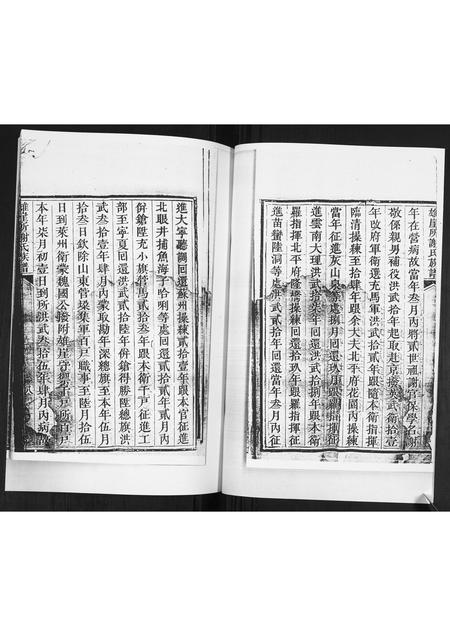 雄崖所謝氏族譜
年在營病故當年叁月內將貳世祖謝官保學名
敬係親男補役洪武拾年起取赴京撥英武衛拾壹
年改府軍衛選充馬軍洪武拾貳年跟隨本衛指揮
臨清操練至拾肆年跟余大夫北平府花園內操練
當年征進灰山泉等處捌月回還玖月跟羅指揮征
進雲南大理洪武拾柒年回還洪武拾捌年跟本衛
羅指揮北平府隆橋操練回還拾玖年跟羅指揮征
進苗蠻陸洞等處洪武貳拾年回還當年叁月內征
進大寧聽調回還蘇州操練貳拾壹年跟本官征進
北眼井捕魚海子哈喇等處回還貳拾貳年貳月內
併鎗陞充小旗管馬貳拾叁年跟本衛千戶征進工
部至寧夏回還洪武貳拾陸年併鎗得勝陞總旗洪
武叁拾壹年肆月內蒙取勘年深總旗至本年伍月
拾叁日欽除山東管垜集軍百戶職事至陸月拾伍
日到萊州衛蒙魏國公撥附雄崖守禦千戶所百戶
本年柒月初壹日到所洪武叁拾伍年肆月內病故
雄崖所謝氏族譜